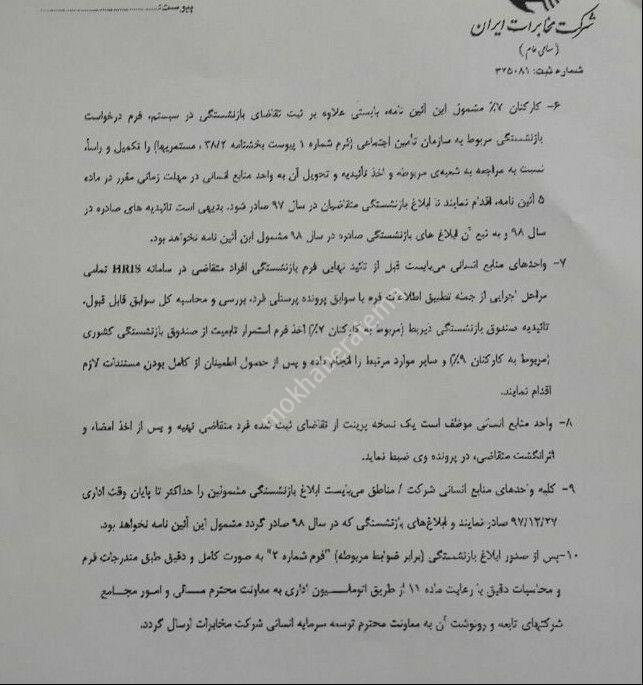 پیوست:
شرکت مخابرات ایران
(سهامی عام)
شماره ثبت: ۳۲۵۰۸۱
۶- کارکنان ۷٪ مشمول این آئین نامه، بایستی علاوه بر ثبت تقاضای بازنشستگی در سیستم، فرم درخواست
بازنشستگی مربوط به سازمان تأمین اجتماعی (فرم شماره ۱ پیوست بخشنامه ۳۸/۲ ، مستمریها) را تکمیل و رأساً،
نسبت به مراجعه به شعبه‌ی مربوطه و اخذ تأئیدیه و تحویل آن به واحد منابع انسانی در مهلت زمانی مقرر در ماده
۵ آئین نامه، اقدام نمایند تا ابلاغ بازنشستگی متقاضیان در سال ۹۷ صادر شود. بدیهی است تائیدیه های صادره در
سال ۹۸ و به تبع آن ابلاغ های بازنشستگی صادره در سال ۹۸ مشمول این آئین نامه نخواهد بود.
۷- واحدهای منابع انسانی می‌بایست قبل از تائید نهایی فرم بازنشستگی افراد متقاضی در سامانه HRIS تمامی
مراحل اجرایی از جمله تطبیق اطلاعات فرم با سوابق پرونده پرسنلی فرد، بررسی و محاسبه کل سوابق قابل قبول،
تائیدیه صندوق بازنشستگی ذیربط (مربوط به کارکنان ۷٪) اخذ فرم استمرار تابعیت از صندوق بازنشستگی کشوری
(مربوط به کارکنان ۹٪) و سایر موارد مرتبط را انجام داده و پس از حصول اطمینان از کامل بودن مستندات لازم
اقدام نمایند.
۸- واحد منابع انسانی موظف است یک نسخه پرینت از تقاضای ثبت شده فرد متقاضی تهیه و پس از اخذ امضاء و
اثرانگشت متقاضی، در پرونده وی ضبط نماید.
۹- کلیه واحدهای منابع انسانی شرکت / مناطق می‌بایست ابلاغ بازنشستگی مشمولین را حداکثر تا پایان وقت اداری
۹۷/۱۲/۲۷ صادر نمایند و ابلاغ‌های بازنشستگی که در سال ۹۸ صادر گردد مشمول این آئین نامه نخواهد بود.
۱۰-پس از صدور ابلاغ بازنشستگی (برابر ضوابط مربوطه) "فرم شماره ۲" به صورت کامل و دقیق طبق مندرجات فرم
و محاسبات دقیق با رعایت ماده ۱۱ از طریق اتوماسیون اداری به معاونت محترم مالی و امور مجامع
شرکتهای تابعه و رونوشت آن به معاونت محترم توسعه سرمایه انسانی شرکت مخابرات ارسال گردد.